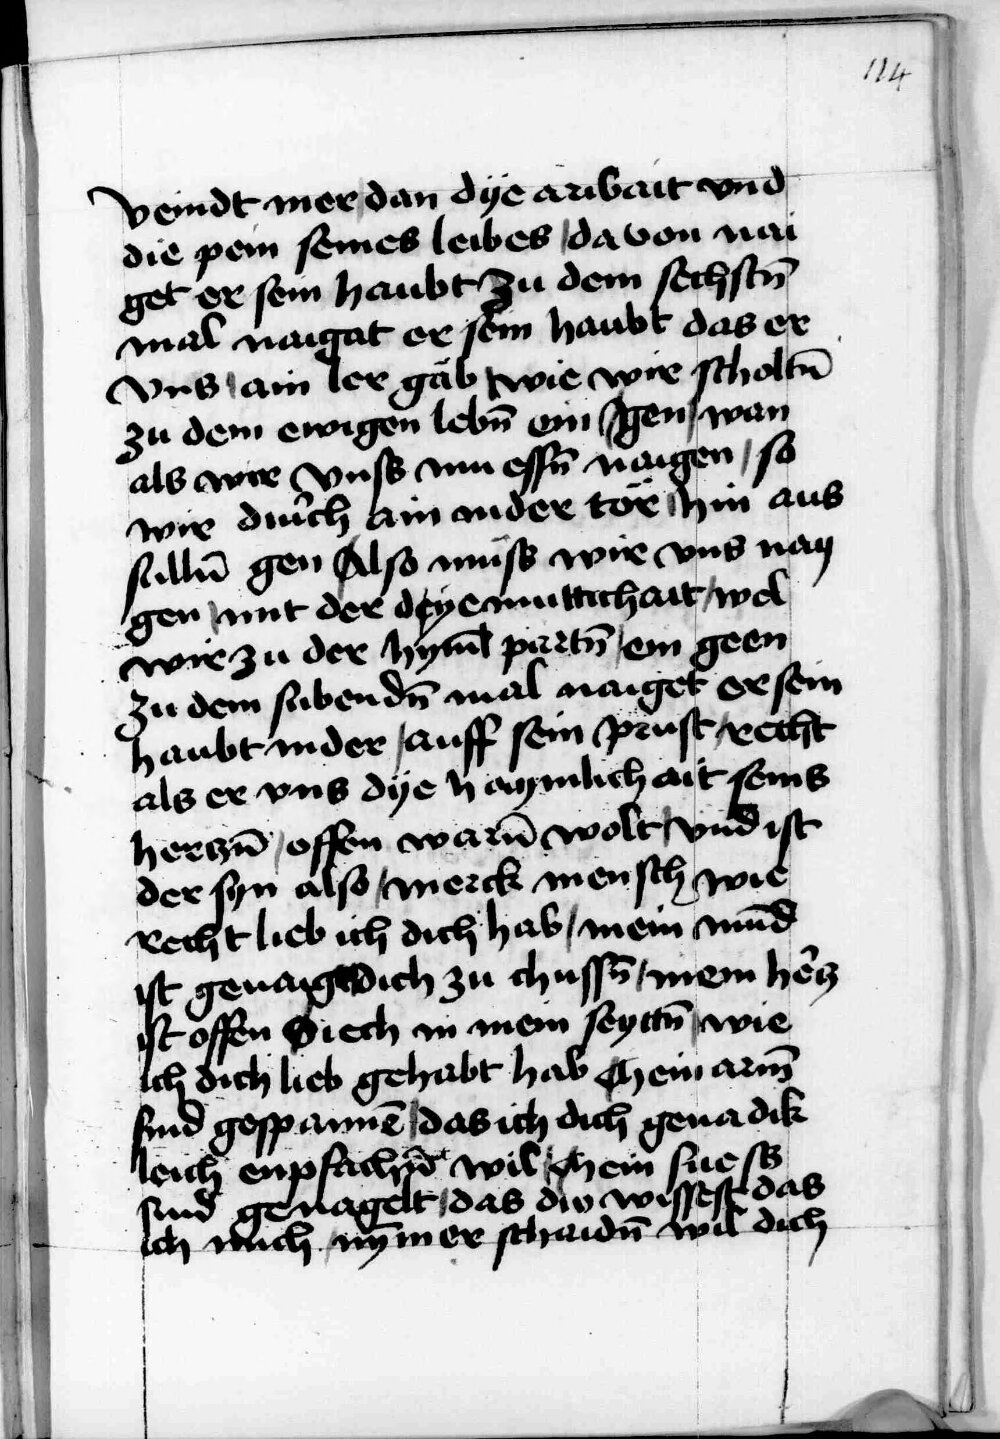 114
veindt mer / dan dÿe aribait vnd
die pein seines leibes / da von nai
get er sein haubt Zu dem sechstn̄
mal naigat er sein haubt das er
vns / ain ler gäb / wie wir scholtn̄
zu dem ewigen lebn̄ ein Igen / wan
als wir vnss mu essn̄ naigen / so
wir durch ain nider tör / hin aus
sulln̄ gen / Also müss wir vns nay
gen / mit der dyemutticheit / wel
wir zu der hymel partn̄ / ein geen
Zu dem sibendn̄ mal naiget er sein
haubt nider / auff sein prust / recht
als er vns dÿe haymlichait seins
herczn̄ / offen warn̄ wolt / vnd ist
der syn also / merck mensch wie
Recht lieb ich dich hab / mein mūnd
ist genaigt dich zu chussn̄ / mein hercz
ist offen Siech in mein seyttn̄ / wie
ich dich lieb gehabt hab Mein armn̄
sind gespannē / das ich dich genadik
leich enpfachn̄ wil / Mein fuess
sind genagelt / das du wissest das
ich mich / nȳmer schaidn̄ wil dich